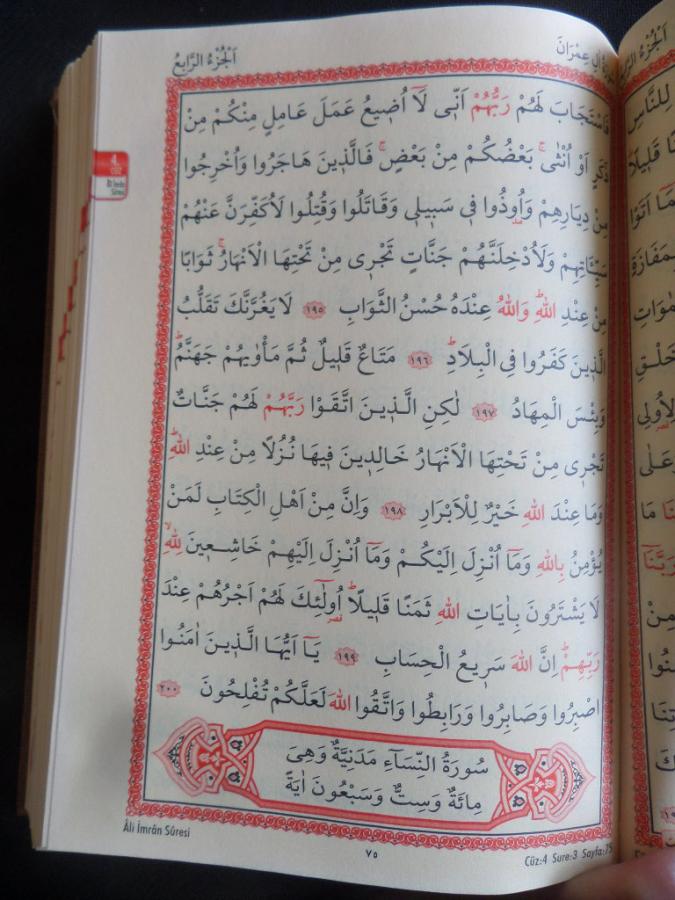 اَلْجُزْءُ الرَّابِعُ
اٰلِ عِمْرَانَ
فَاسْتَجَابَ لَهُمْ رَبُّهُمْ اَنّ۪ى لَٓا اُض۪يعُ عَمَلَ عَامِلٍ مِنْكُمْ مِنْ
ذَكَرٍ اَوْ اُنْثٰىۚ بَعْضُكُمْ مِنْ بَعْضٍۚ فَالَّذ۪ينَ هَاجَرُوا وَاُخْرِجُوا
مِنْ دِيَارِهِمْ وَاُوذُوا ف۪ى سَب۪يل۪ى وَقَاتَلُوا وَقُتِلُوا لَاُكَفِّرَنَّ عَنْهُمْ
سَيِّـَٔاتِهِمْ وَلَاُدْخِلَنَّهُمْ جَنَّاتٍ تَجْر۪ى مِنْ تَحْتِهَا الْاَنْهَارُۚ ثَوَابًا
مِنْ عِنْدِ اللّٰهِۜ وَاللّٰهُ عِنْدَهُ حُسْنُ الثَّوَابِ ١٩٥ لَا يَغُرَّنَّكَ تَقَلُّبُ
الَّذ۪ينَ كَفَرُوا فِى الْبِلَادِۜ ١٩٦ مَتَاعٌ قَل۪يلٌ ثُمَّ مَأْوٰيهُمْ جَهَنَّمُۜ
وَبِئْسَ الْمِهَادُ ١٩٧ لٰكِنِ الَّذ۪ينَ اتَّقَوْا رَبَّهُمْ لَهُمْ جَنَّاتٌ
تَجْر۪ى مِنْ تَحْتِهَا الْاَنْهَارُ خَالِد۪ينَ ف۪يهَا نُزُلًا مِنْ عِنْدِ اللّٰهِۜ
وَمَا عِنْدَ اللّٰهِ خَيْرٌ لِلْاَبْرَارِ ١٩٨ وَاِنَّ مِنْ اَهْلِ الْكِتَابِ لَمَنْ
يُؤْمِنُ بِاللّٰهِ وَمَٓا اُنْزِلَ اِلَيْكُمْ وَمَٓا اُنْزِلَ اِلَيْهِمْ خَاشِع۪ينَ لِلّٰهِۙ
لَا يَشْتَرُونَ بِاٰيَاتِ اللّٰهِ ثَمَنًا قَل۪يلًاۜ اُو۬لٰٓئِكَ لَهُمْ اَجْرُهُمْ عِنْدَ
رَبِّهِمْۜ اِنَّ اللّٰهَ سَر۪يعُ الْحِسَابِ ١٩٩ يَٓا اَيُّهَا الَّذ۪ينَ اٰمَنُوا
اصْبِرُوا وَصَابِرُوا وَرَابِطُوا وَاتَّقُوا اللّٰهَ لَعَلَّكُمْ تُفْلِحُونَ ٢٠٠
سُورَةُ النِّسَٓاءِ مَدَنِيَّةٌ وَهِىَ
مِائَةٌ وَسِتٌّ وَسَبْعُونَ اٰيَةً
4.
CÜZ
Âl-i İmrân
Sûresi
Âli İmrân Sûresi
٧٥
Cüz:4 Sure:3 Sayfa:75